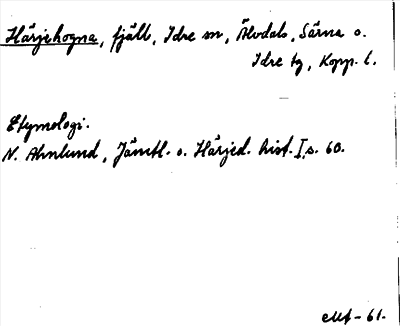 Härjehogna, fjäll, Idre sn, Älvdals, Särna o.
Idre tg, Kopp. l.
Etymologi.
N. Ahnlund, Jämtl. o. Härjed. hist. I, s. 60.
-61.